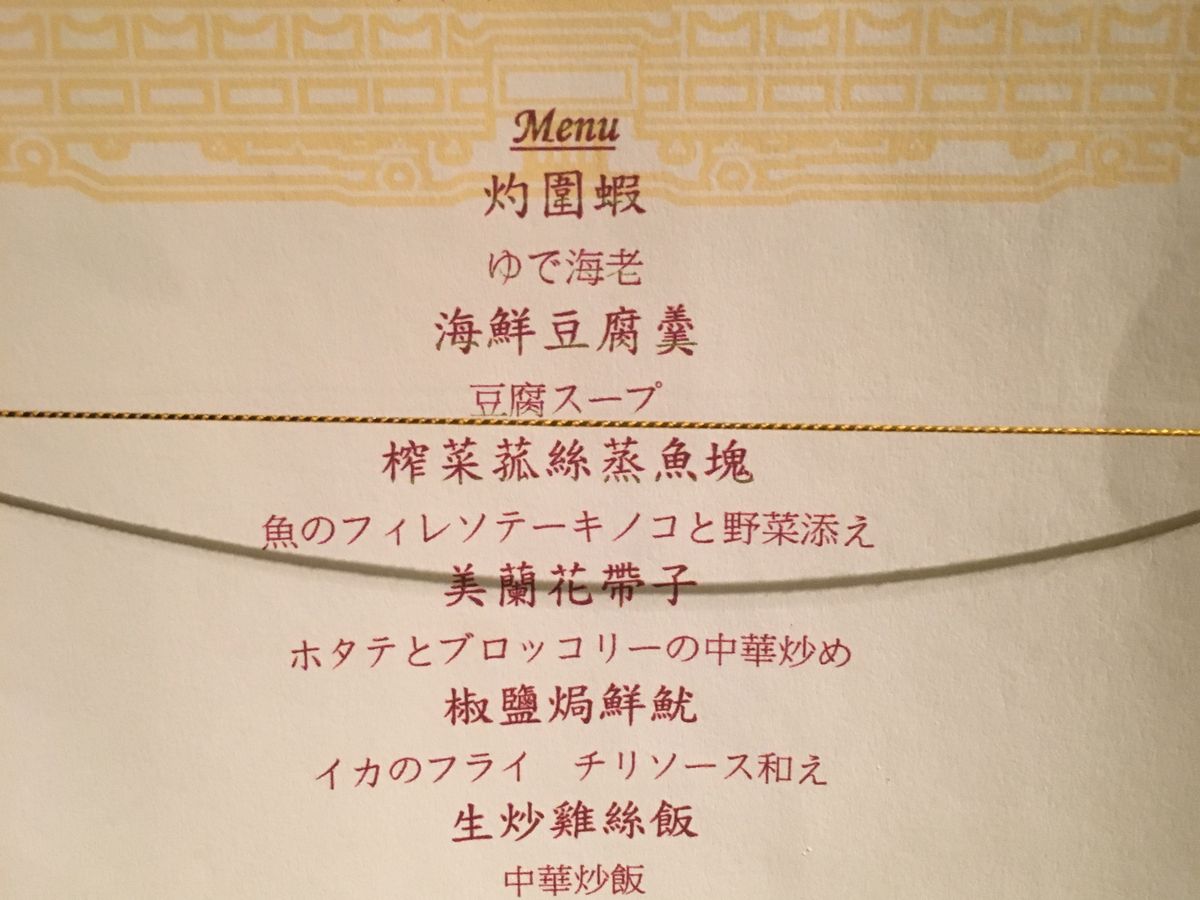 Menu
灼圍蝦
ゆで海老
海鮮豆腐羹
豆腐スープ
榨菜菰絲蒸魚塊
魚のフィレソテーキノコと野菜添え
美蘭花帶子
ホタテとブロッコリーの中華炒め
椒鹽焗鮮魷
イカのフライ　チリソース和え
生炒雞絲飯
中華炒飯